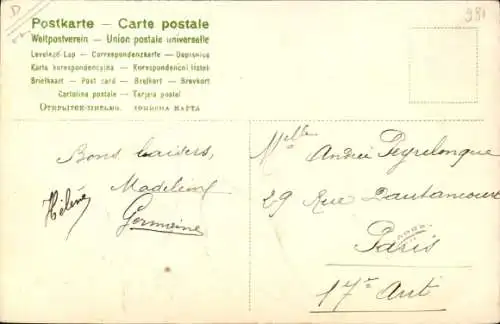 Postkarte — Carte postale
Weltpostverein — Union postale universelle
Levelező-Lap — Correspondenzkarte — Dopisnica
Karta korespondencyjna — Korespondenční lístek
Briefkaart — Post card — Brefkort — Brevkort
Cartolina postale — Tarjeta postal
Открытое письмо.
D
991
Bons baisers,
Madeleine
Hélène
Germaine
Melle Andrée Peyrelongue
29 Rue Dautancourt
Paris
17e Art